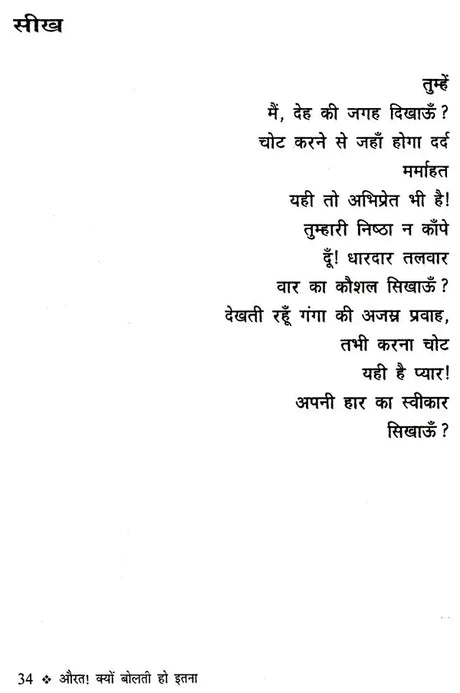 सीख
तुम्हें
मैं, देह की जगह दिखाऊँ?
चोट करने से जहाँ होगा दर्द
मर्माहत
यही तो अभिप्रेत भी है!
तुम्हारी निष्ठा न काँपे
दूँ! धारदार तलवार
वार का कौशल सिखाऊँ?
देखती रहूँ गंगा की अजस्र प्रवाह,
तभी करना चोट
यही है प्यार!
अपनी हार का स्वीकार
सिखाऊँ?
34 ❖ औरत! क्यों बोलती हो इतना